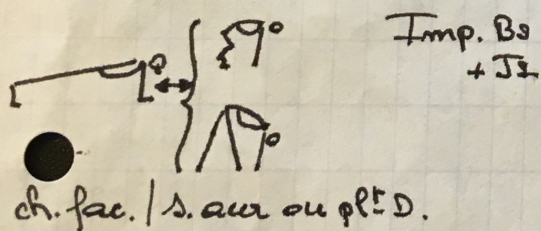 Imp. Bs
+ Js
ch. fac. / s. aur ou plt D.